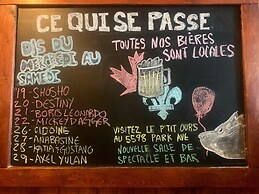 CE QUI SE PASSE
DJS DU
MERCREDI AU
SAMEDI
TOUTES NOS BIÈRES
SONT LOCALES
19 - SHOSHO
20 - DESTINY
21 - BORIS LEONARDO
22 - MICKEY DAGGER
26 - CIDOINE
27 - ANABASINE
28 - KATIA & GUSTANG
29 - AXEL YULAN
VISITEZ LE P'TIT OURS
AU 5598 PARK AVE
NOUVELLE SALLE DE
SPECTACLE ET BAR